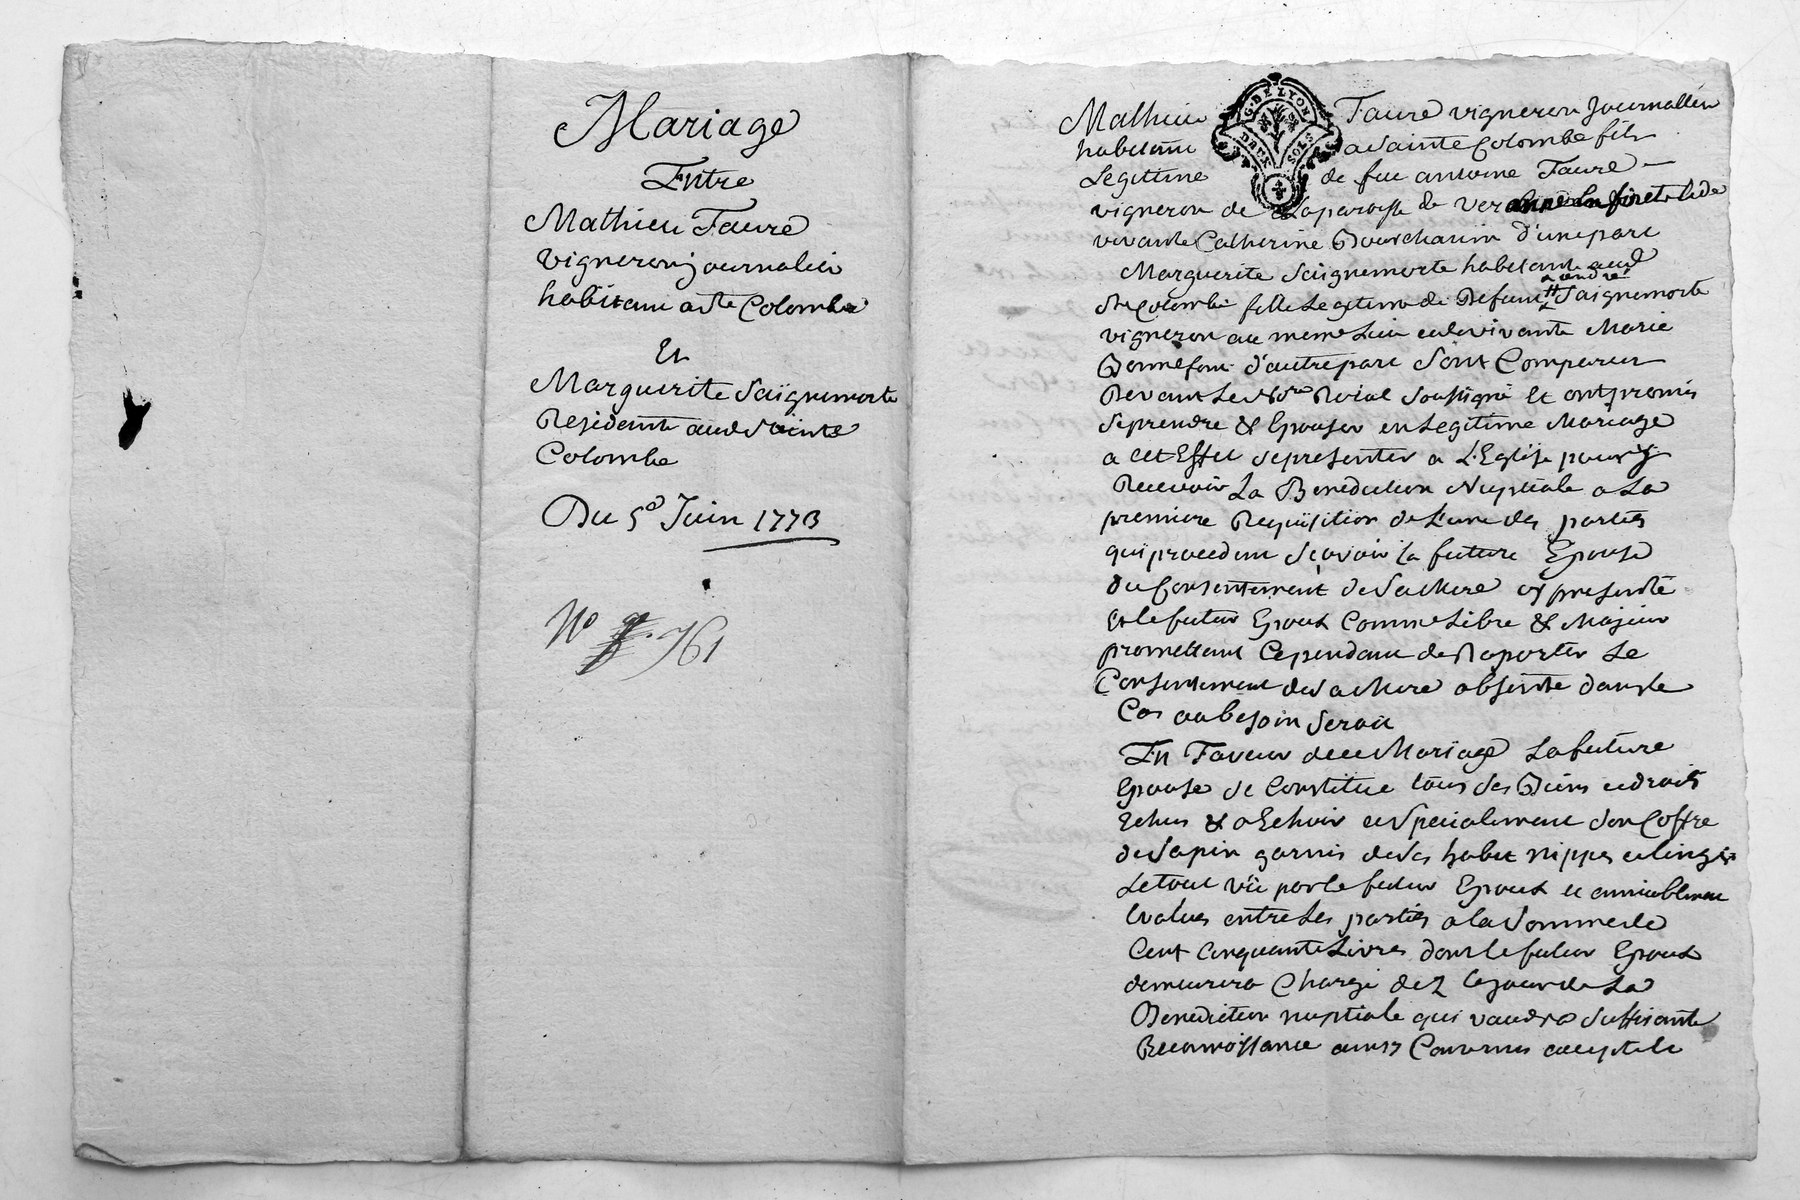 Mariage
Entre
Mathieu Faure
vigneron journalier
habitant a Ste Colombe
Et
Marguerite Saignemorte
Residente aud Sainte
Colombe
Du 5e Juin 1773
No 761
G. DE LYON
DEUX SOLS
Mathieu Faure vigneron Journallier
habitant a Sainte Colombe fils
Legitime de feu antoine Faure
vigneron de Laparoisse de
vivante Catherine d'une part
Marguerite Saignemorte habitante aud
andré
Ste Colombe fille Legitime de Defunt Saignemorte
vigneron au meme Lieu et de vivante Marie
Bonnefont d'autre part Sont Comparus
Devant Le Nore Roial Soussigné Et ont promis
Se prendre & Epouser en Legitime Mariage
a cet Effet se presenter a L'Eglise pour y
Recevoir La Benediction Nuptiale a La
premiere Requisition de L'une des parties
qui procedent Scavoir la future Epouse
du Consentement de Sa Mere cy presente
Et le futur Epoux Comme Libre & Majeur
promettant Cependant de Raporter Le
Consentement de sa Mere absente dans le
Cas au besoin Serait
En Faveur de ce Mariage La future
Epouse se Constitue tous ses Biens et droits
Echus & a Echoir et Specialement Son Coffre
de Sapin garnis de Ses habit nippes et linges
Le tout vû par le futur Epoux et amiablement
Evalués entre Les parties a la Somme de
Cent Cinquante Livres dont le futur Epoux
demeurera Chargé dez le jour de La
Benediction nuptiale qui vaudra Suffisante
Reconnoissance ainsy Convenus accepté